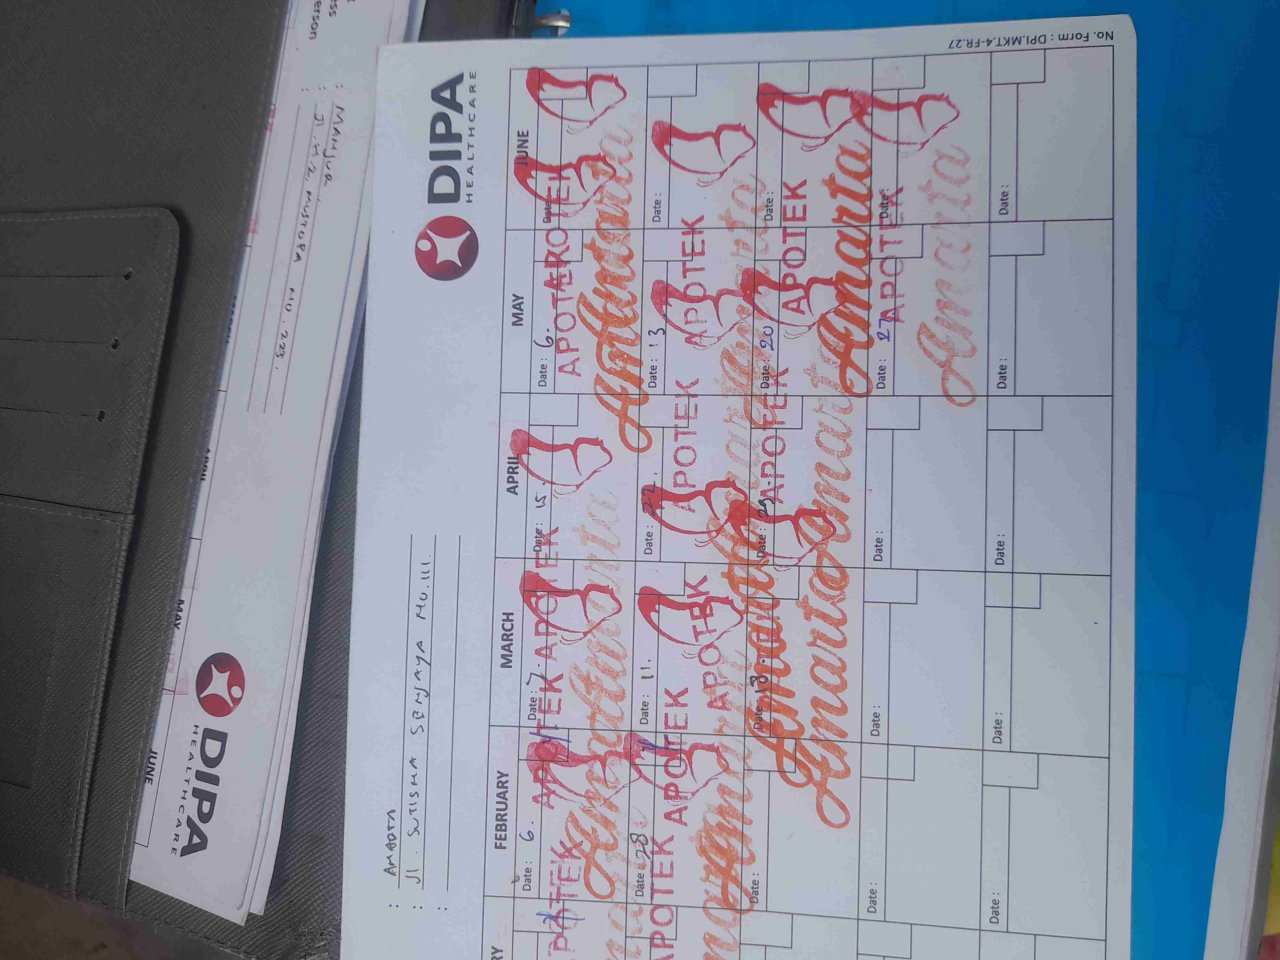 No. Form : DPI.MKT.4-FR.27
DIPA
HEALTHCARE
: AMARTA
: Jl. SUTISNA SENJAYA NO.111
:
FEBRUARY
MARCH
APRIL
MAY
JUNE
Date : 6.
Date : 7
Date : 15.
Date : 6.
Date :
APOTEK APOTEK APOTEK APOTEK APOTEK
Amarta Amarta Amarta Amarta Amarta
Date : 28
Date : 11.
Date : 22.
Date : 13
Date :
APOTEK APOTEK APOTEK APOTEK APOTEK
Amarta Amarta Amarta Amarta
Date :
Date : 18.
Date : 29.
Date : 20
Date :
APOTEK APOTEK
Amarta Amarta Amarta
Date :
Date :
Date :
Date : 27
Date :
APOTEK
Amarta
Date :
Date :
Date :
Date :
erson
: Jl. H.Z. MUSTOFA NO. 223.
MAY
JUNE
DIPA
HEALTHCARE